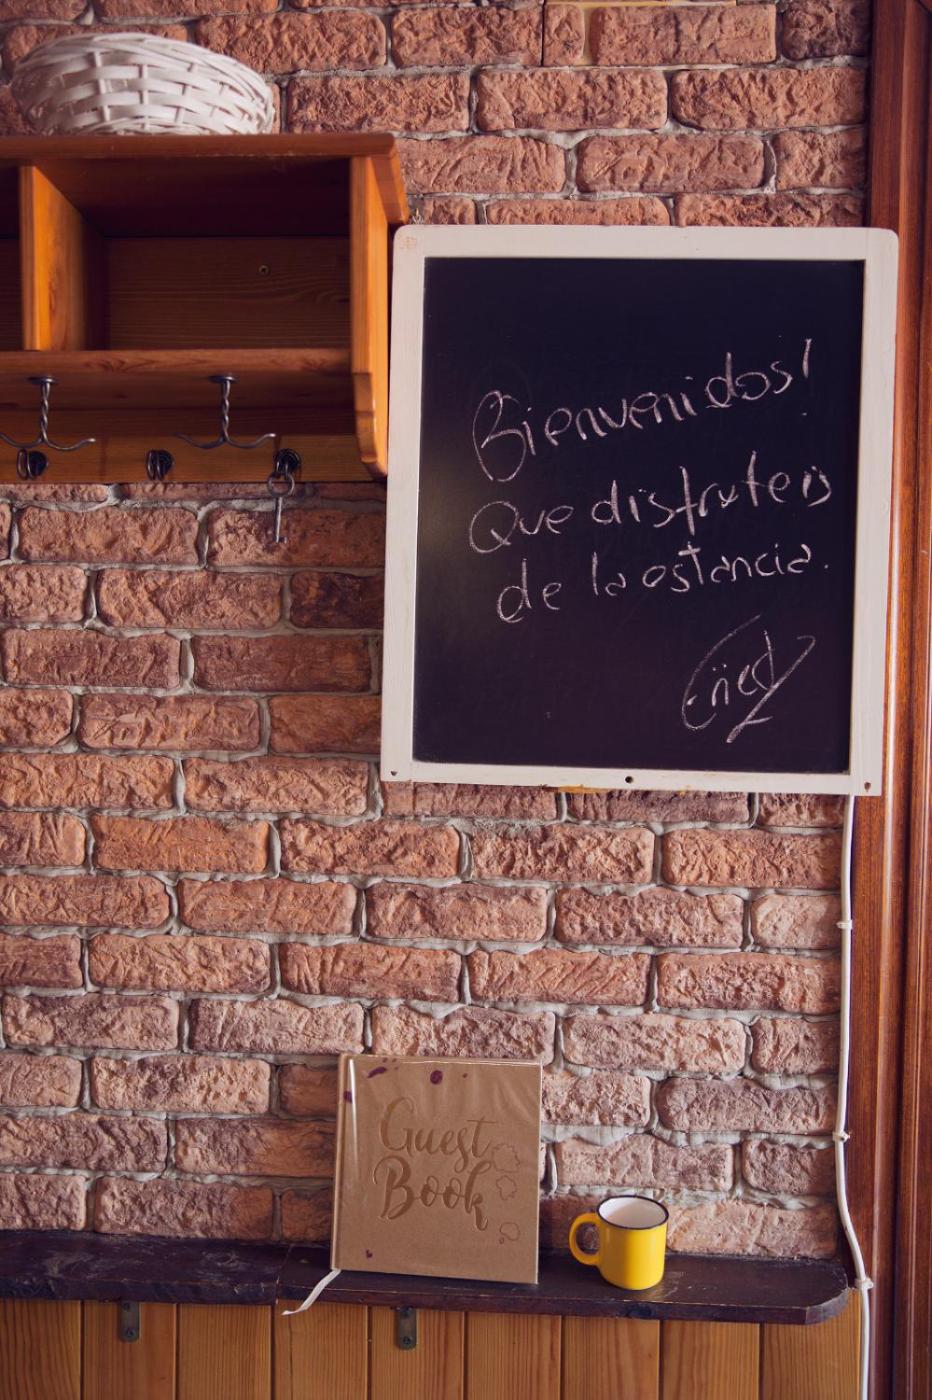 Bienvenidos!
Que disfruteis
de la estancia.
Guest
Book